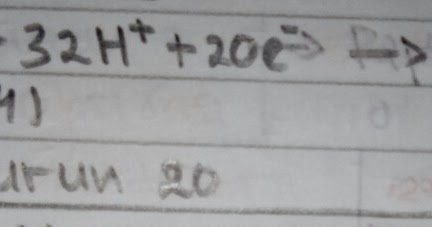 32H⁺ + 20e⁻ →
4)
urun 20